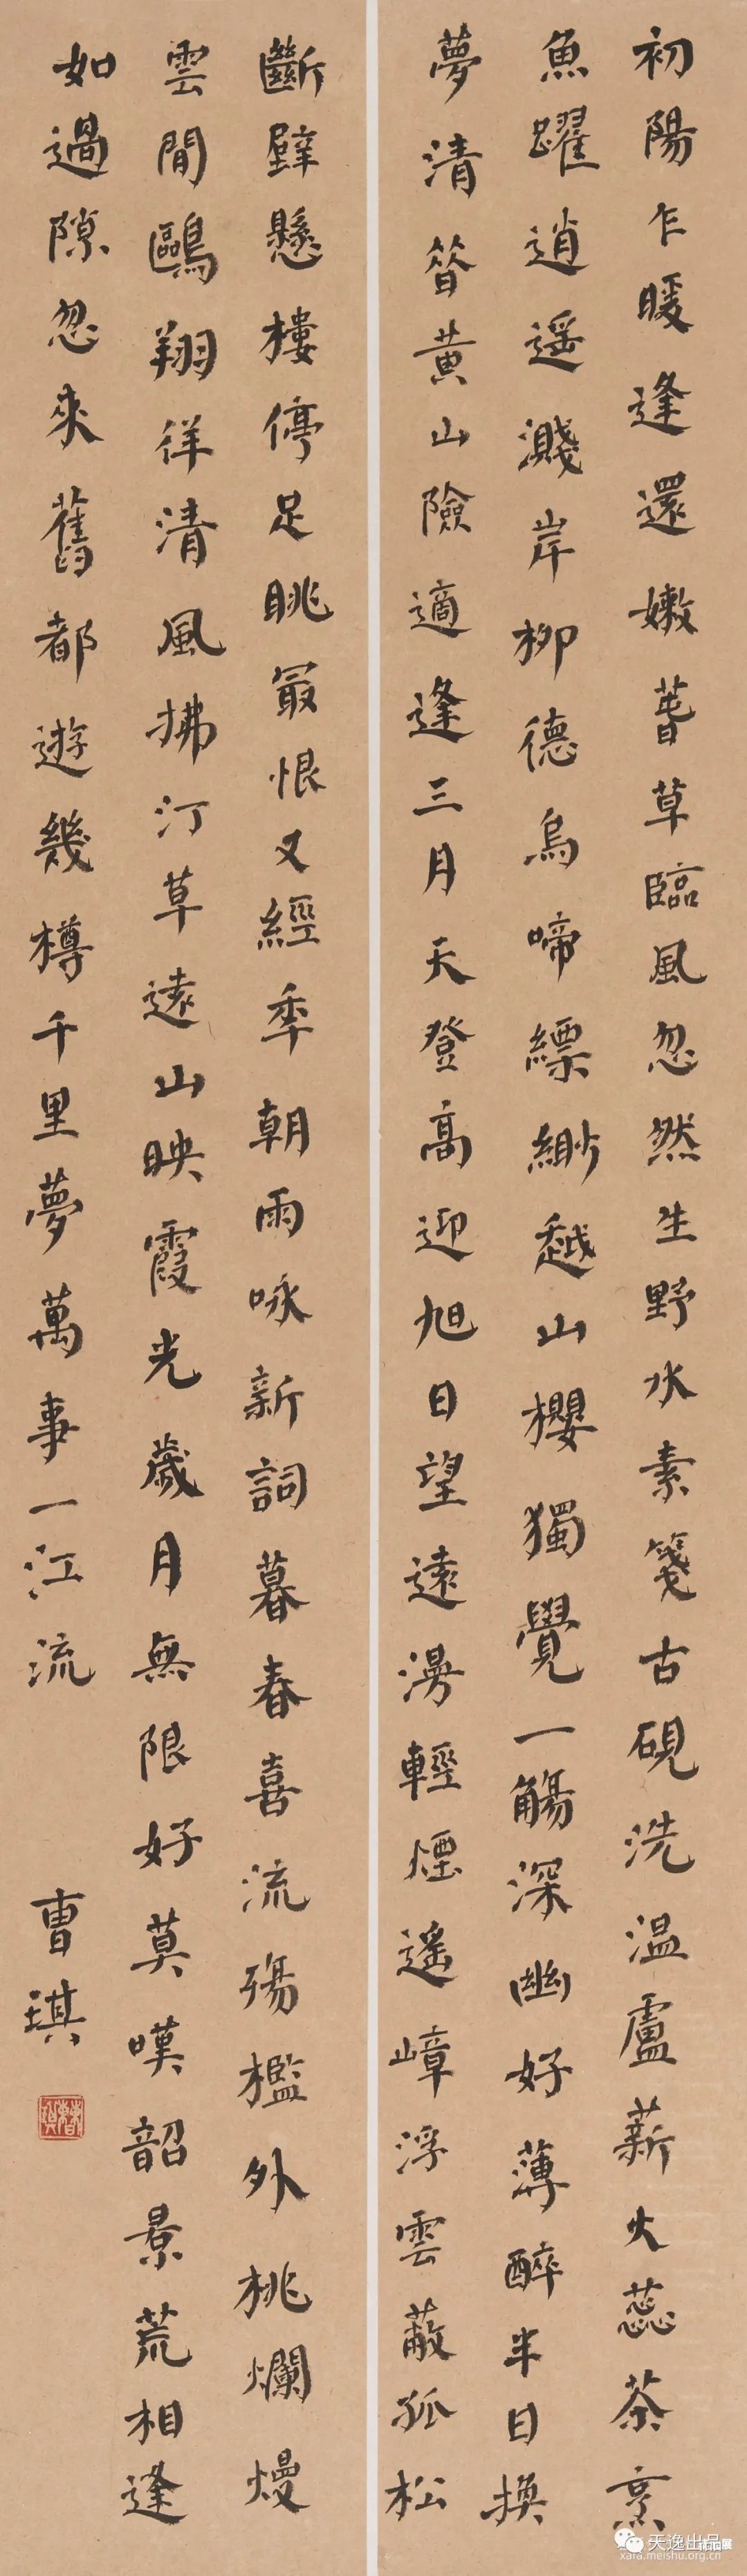 初陽乍暖逢還嫩萅草臨風忽然生野水素箋古硯洗温盧薪火蕊茶烹
魚躍逍遥濺岸柳德鳥啼縹緲越山櫻獨覺一觴深幽好薄醉半日換
夢清昝黄山險適逢三月天登高迎旭日望遠漫輕煙遥嶂浮雲蔽孤松
斷壁懸樓停足眺最恨又經年朝雨咏新詞暮春喜流殤檻外桃爛熳
雲間鷗翔徉清風拂汀草遠山映霞光歲月無限好莫嘆韶景荒相逢
如過隙忽來舊都遊幾樽千里夢萬事一江流
曹琪
天逸出品
xafa.meishu.org.cn